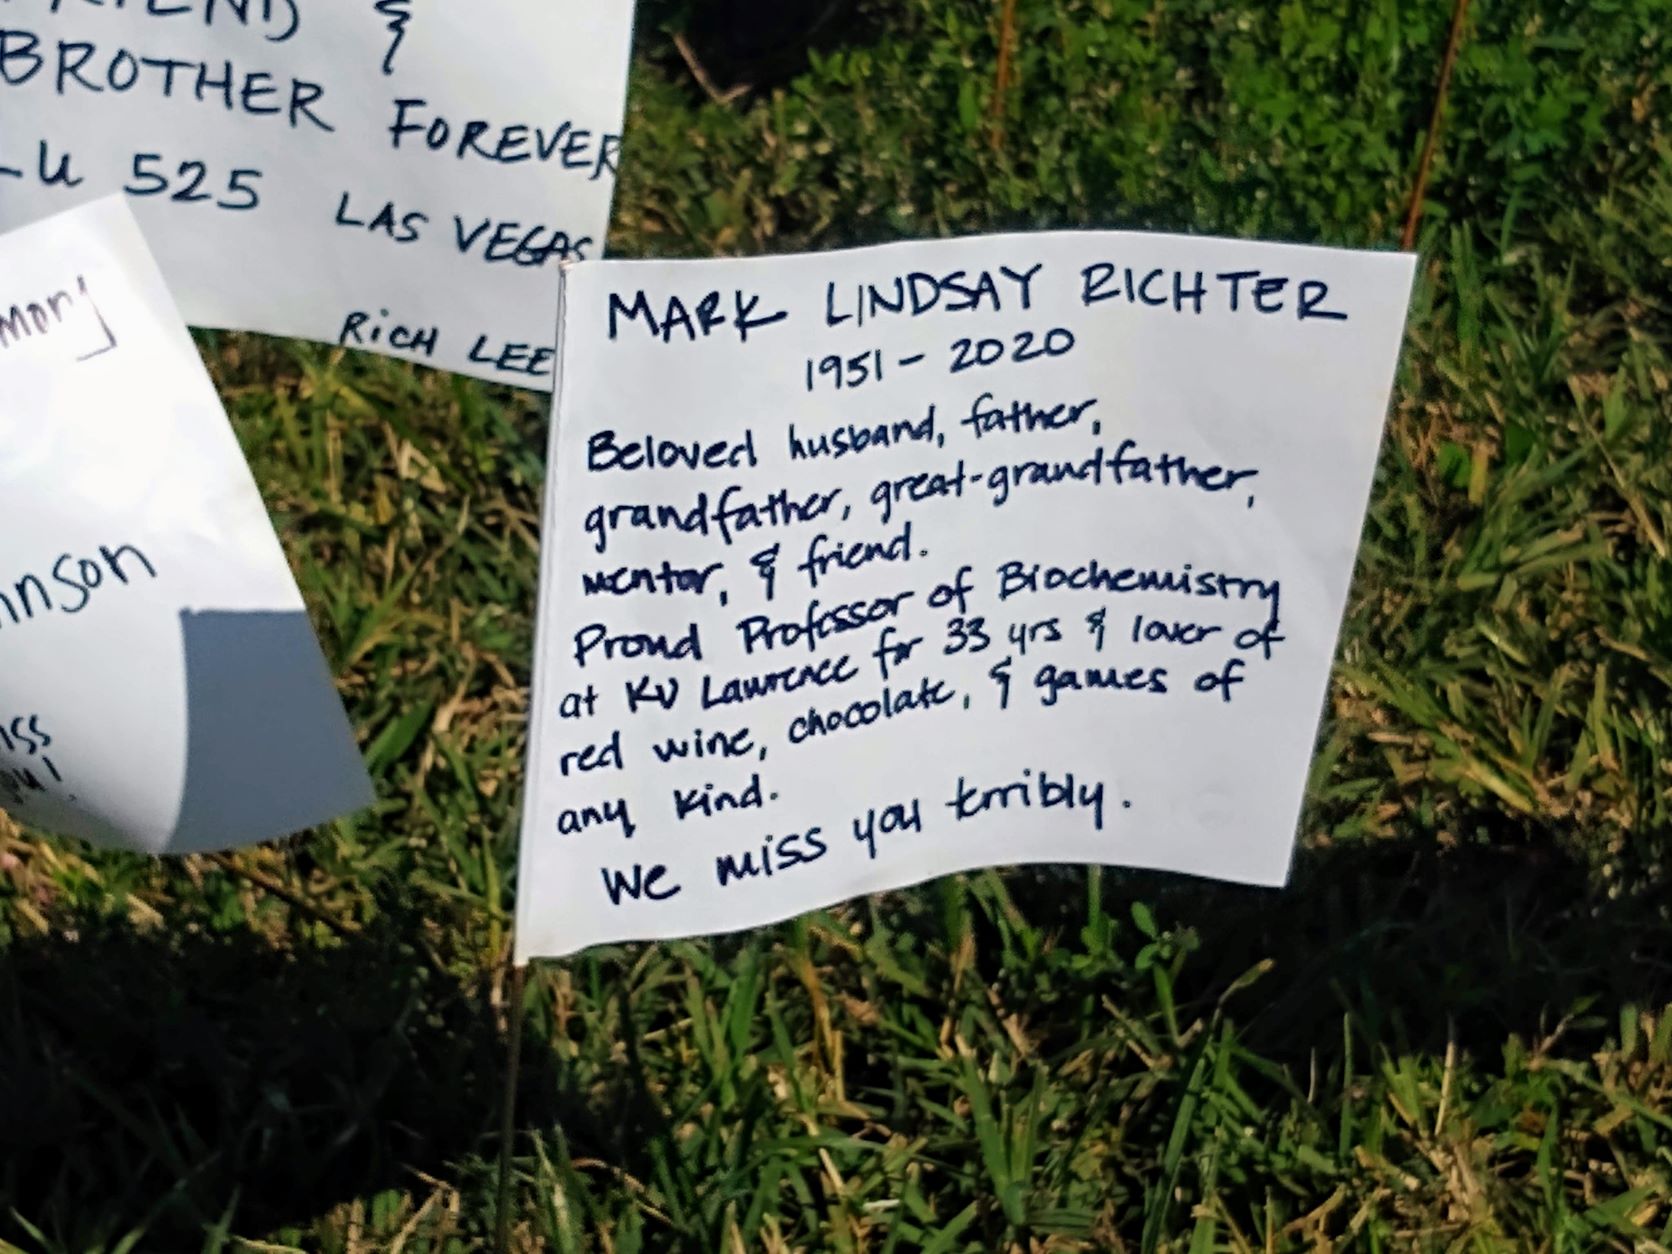 &
BROTHER FOREVER
LU 525 LAS VEGAS
RICH LEE
MARK LINDSAY RICHTER
1951 - 2020
Beloved husband, father,
grandfather, great-grandfather,
mentor, & friend.
Proud Professor of Biochemistry
at KU Lawrence for 33 yrs & lover of
red wine, chocolate, & games of
any kind.
We miss you terribly.